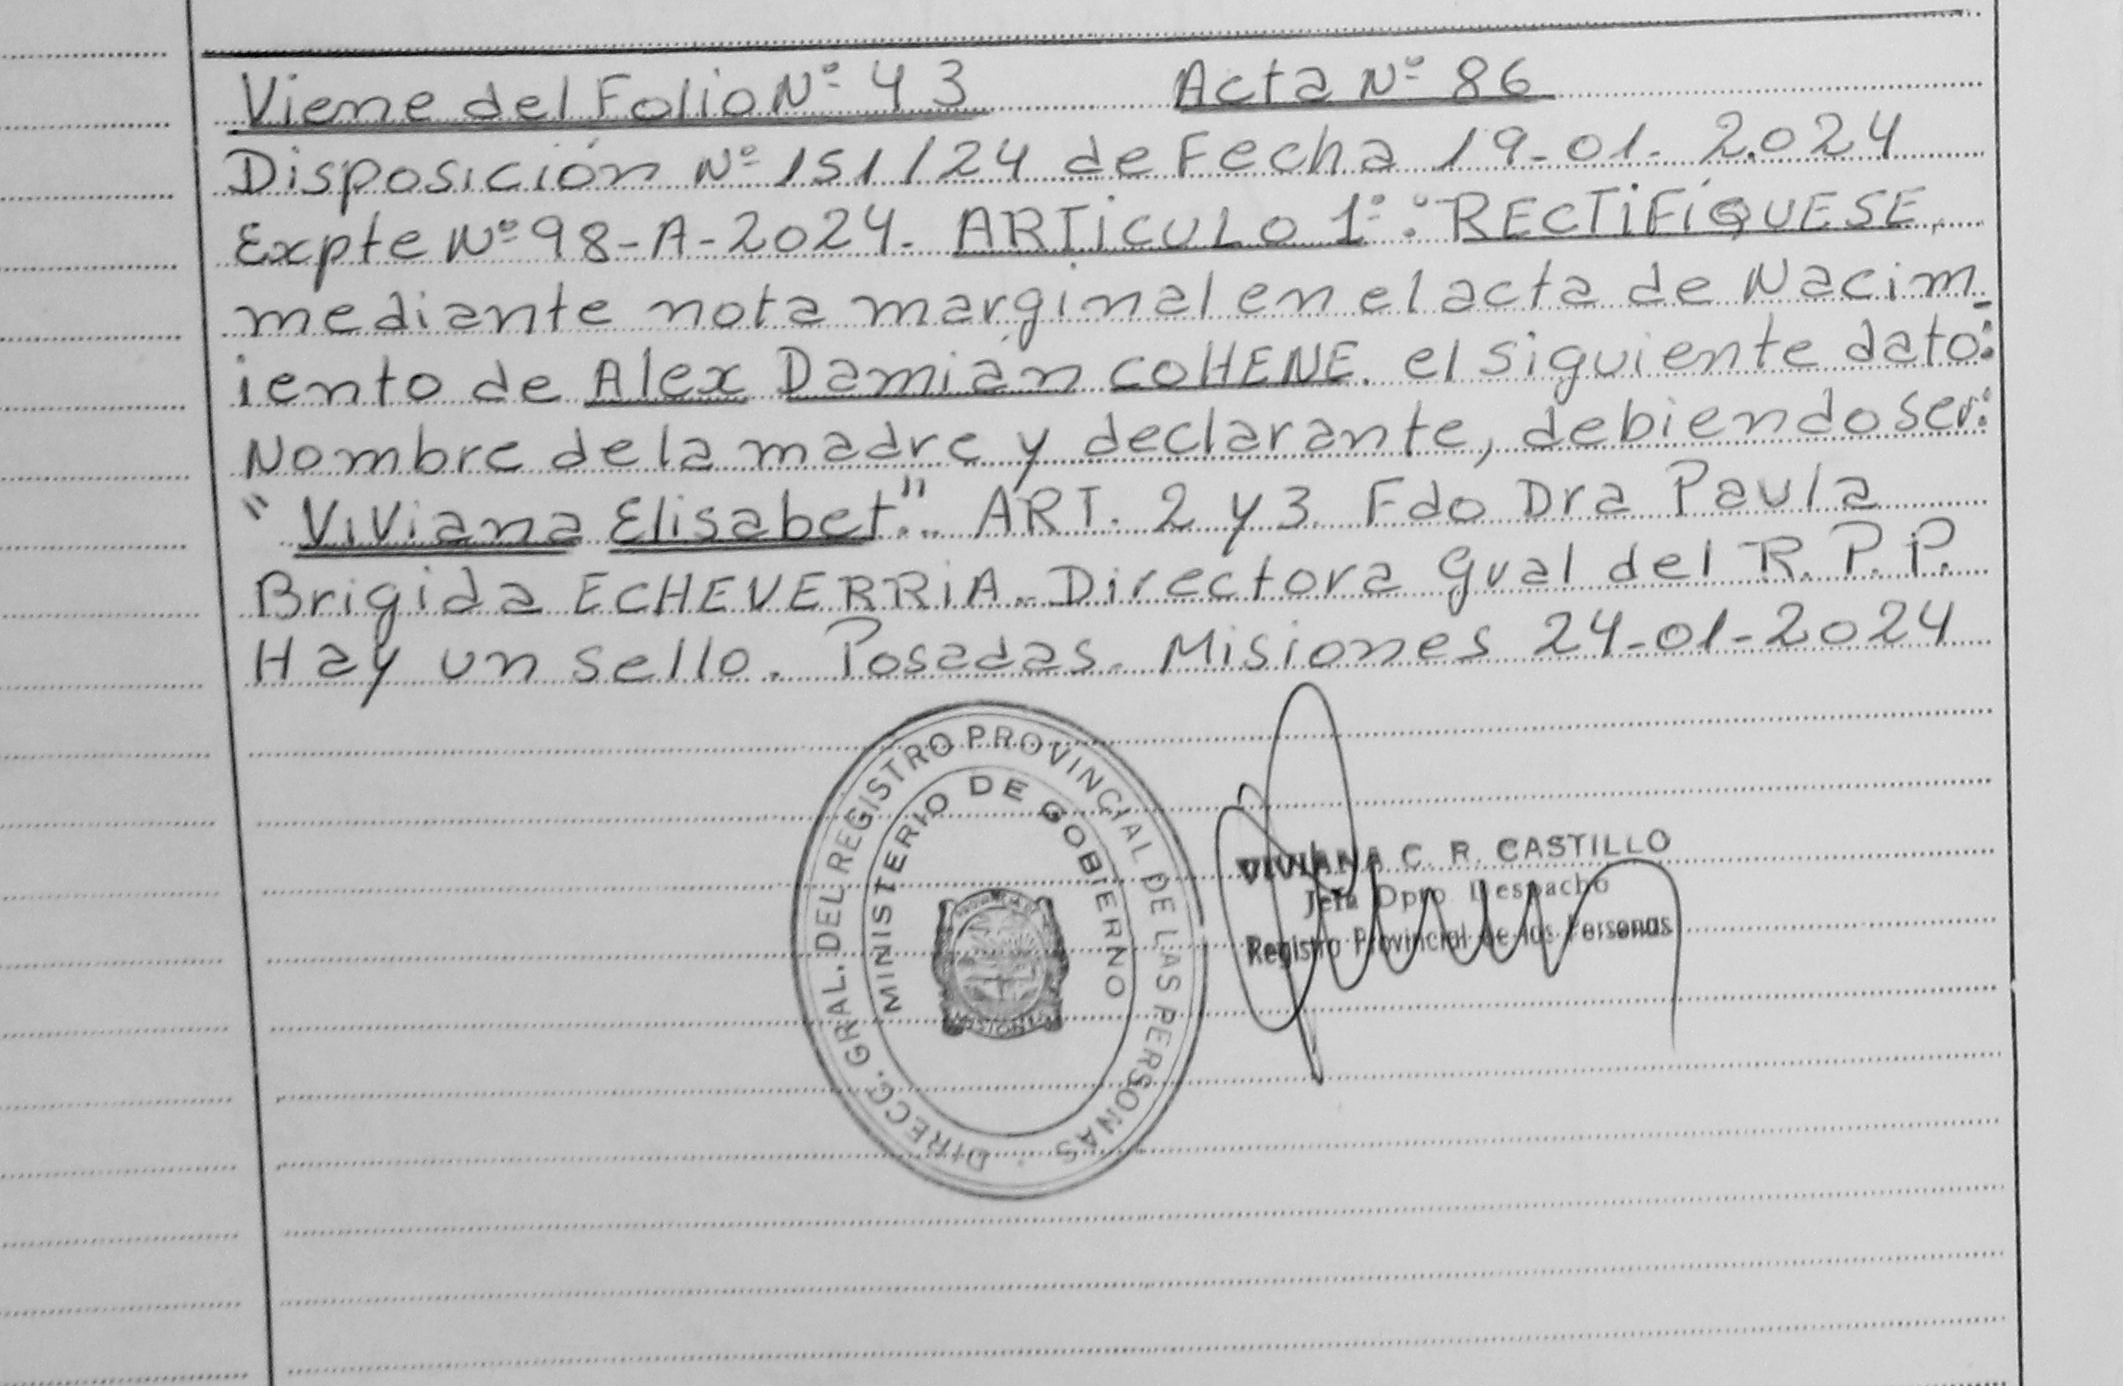 Viene del Folio Nº 43 Acta Nº 86
Disposición Nº 151/24 de Fecha 19-01-2.024
Expte Nº 98-A-2024. ARTiCULO 1º: RECTiFíQUESE,
mediante nota marginal en el acta de Nacim-
iento de Alex Damián COHENE. el siguiente dato:
Nombre de la madre y declarante, debiendo ser:
"ViViana Elisabet". ART. 2 y 3 Fdo Dra Paula
Brigida ECHEVERRiA. Directora Gual del R.P.P.
Hay un sello. Posadas. Misiones 24-01-2024
DIRECC. GRAL. DEL REGISTRO PROVINCIAL DE LAS PERSONAS
MINISTERIO DE GOBIERNO
MISIONES
VIVIANA C. R. CASTILLO
Jefa Dpto Despacho
Registro Provincial de las Personas